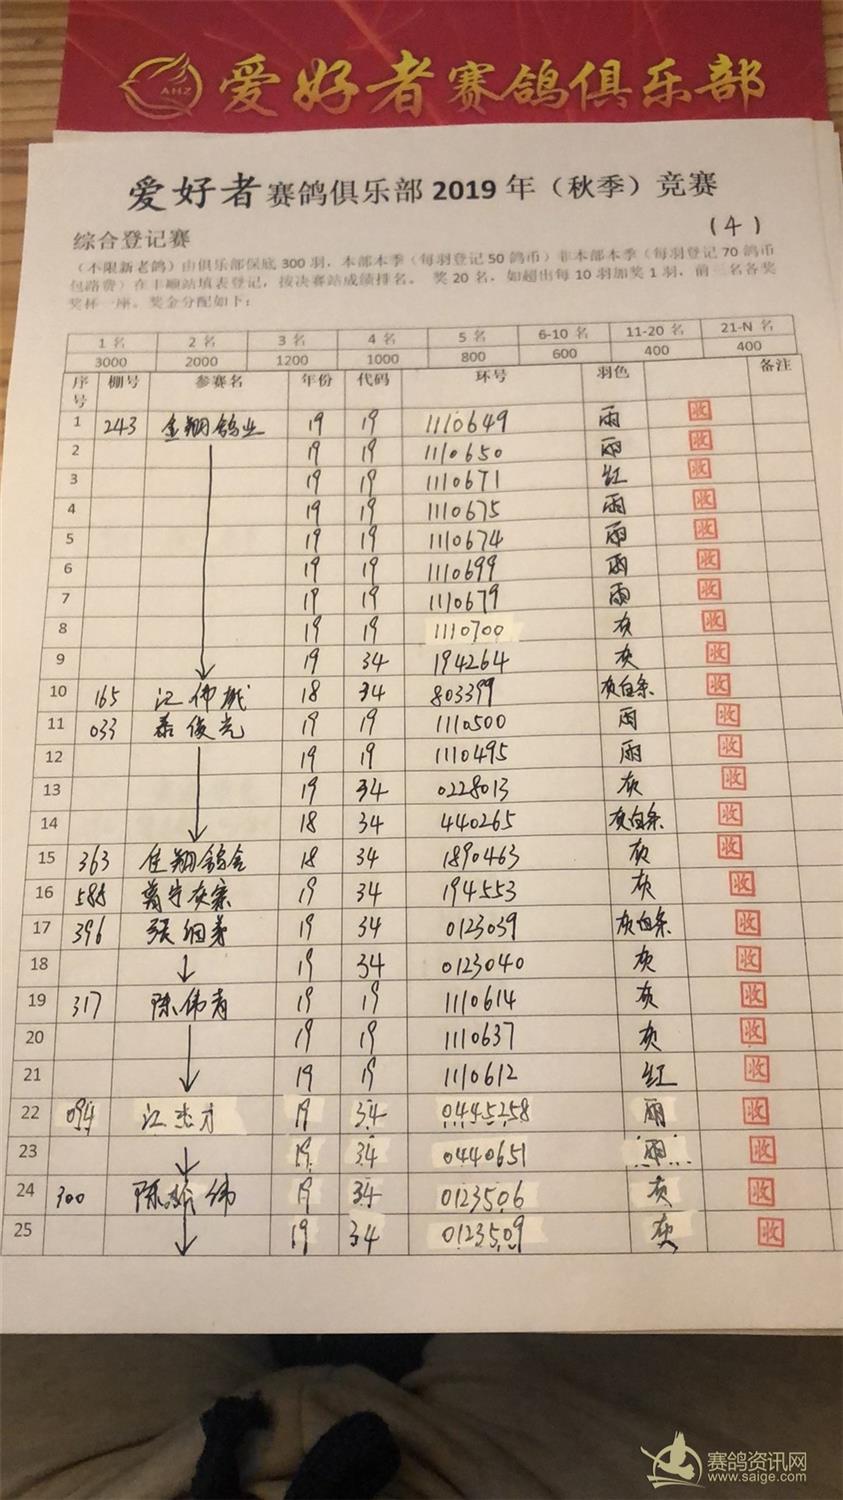 AHZ 爱好者赛鸽俱乐部
爱好者赛鸽俱乐部 2019 年（秋季）竞赛
(4)
综合登记赛
（不限新老鸽）由俱乐部保底 300 羽，本部本季（每羽登记 50 鸽币）非本部本季（每羽登记 70 鸽币
包路费）在丰顺站填表登记，按决赛站成绩排名。 奖 20 名，如超出每 10 羽加奖 1 羽，前三名各奖
奖杯一座。奖金分配如下：
1 名 2 名 3 名 4 名 5 名 6-10 名 11-20 名 21-N 名
3000 2000 1200 1000 800 600 400 400
序号 棚号 参赛名 年份 代码 环号 羽色 备注
1 243 金翔鸽业 19 19 1110649 雨 收
2 19 19 1110650 雨 收
3 19 19 1110671 红 收
4 19 19 1110675 雨 收
5 19 19 1110674 雨 收
6 19 19 1110699 雨 收
7 19 19 1110679 雨 收
8 19 19 1110700 灰 收
9 19 34 194264 灰 收
10 165 江伟 18 34 803399 灰白条 收
11 033 俊光 19 19 1110500 雨 收
12 19 19 1110495 雨 收
13 19 34 0228013 灰 收
14 18 34 440265 灰白条 收
15 363 佳翔鸽舍 18 34 1890463 灰 收
16 588 19 34 194553 灰 收
17 396 张细弟 19 34 0123039 灰白条 收
18 19 34 0123040 灰 收
19 317 陈伟青 19 19 1110614 灰 收
20 19 19 1110637 灰 收
21 19 19 1110612 红 收
22 094 江杰才 19 34 0445258 雨 收
23 19 34 0440651 雨 收
24 300 陈 伟 19 34 0123506 灰 收
25 19 34 0123509 灰 收
赛鸽资讯网
www.saige.com